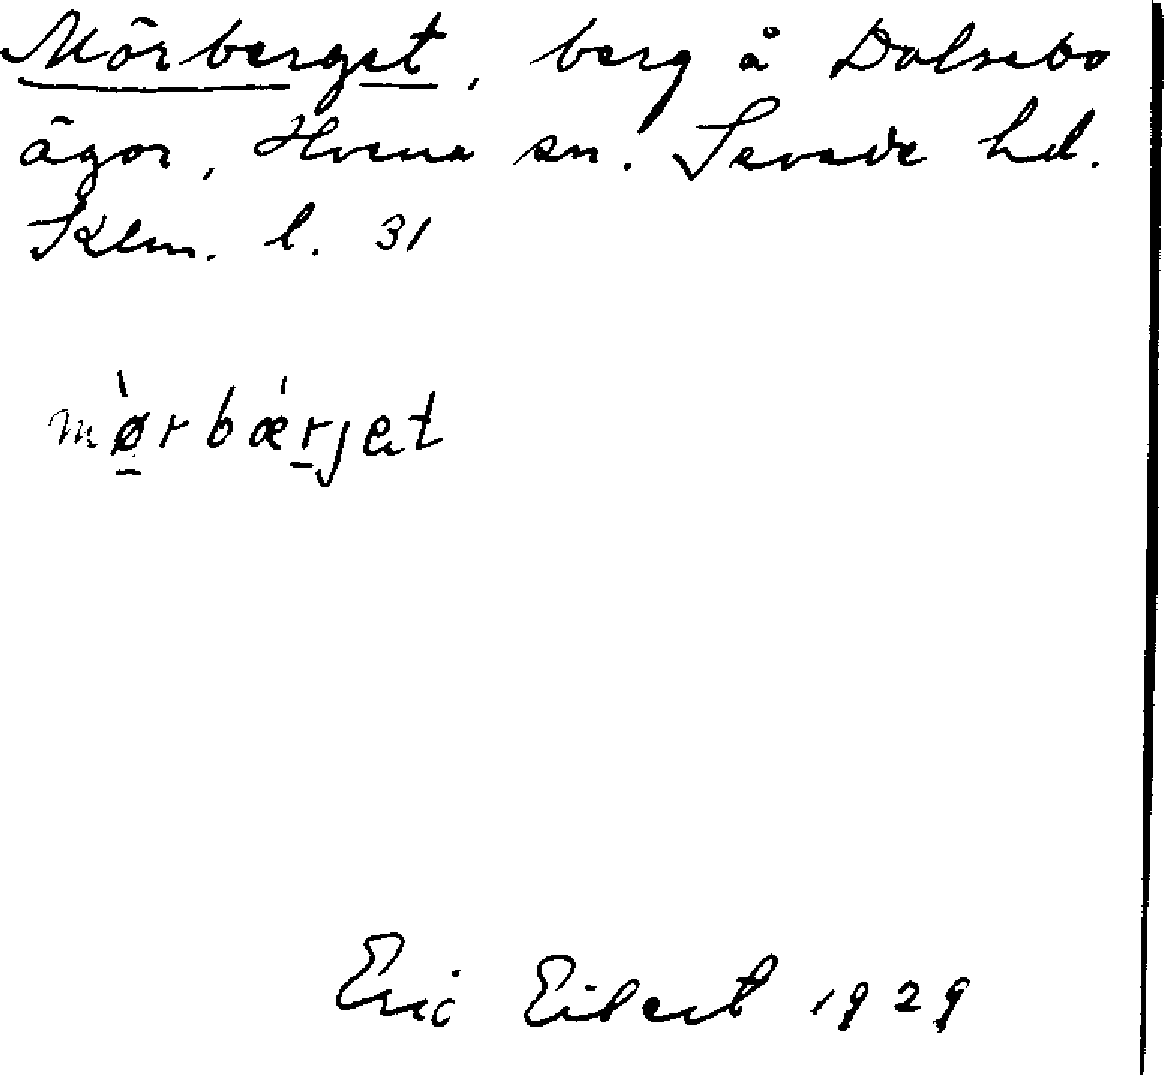 Mörberget, berg å Dalsebo
ägor, Hvena sn. Sevede hd.
Kalm. l. 31
mø̱̀rbæ̀ṟjet
Eric Eibert 1929